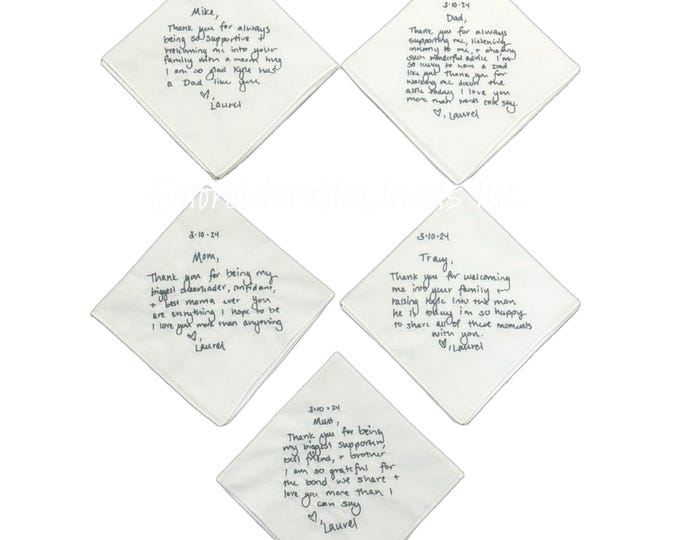 Mike,
Thank you for always
being so supportive &
welcoming me into your
family with a warm hug
I am so glad Kyle has
a Dad like you
♡, Laurel
3·10·24
Dad,
Thank you for always
supporting me, listening
to me, + sharing
your wonderful advice I'm
so lucky to have a Dad
like you Thank you for
walking me down the
aisle today I love you
more than words can say.
♡, Laurel
EmbroiderableLinens Inc.
3·10·24
Mom,
Thank you for being my
biggest cheerleader, confidant,
+ best mama ever You
are everything I hope to be
I love you more than anything
♡, Laurel
3·10·24
Tracy,
Thank you for welcoming
me into your family +
raising Kyle into the man
he is today I'm so happy
to share all of these moments
with you.
♡, Laurel
3·10·24
Matt,
Thank you for being
my biggest supporter,
best friend, + brother
I am so grateful for
the bond we share +
love you more than I
can say
♡, Laurel